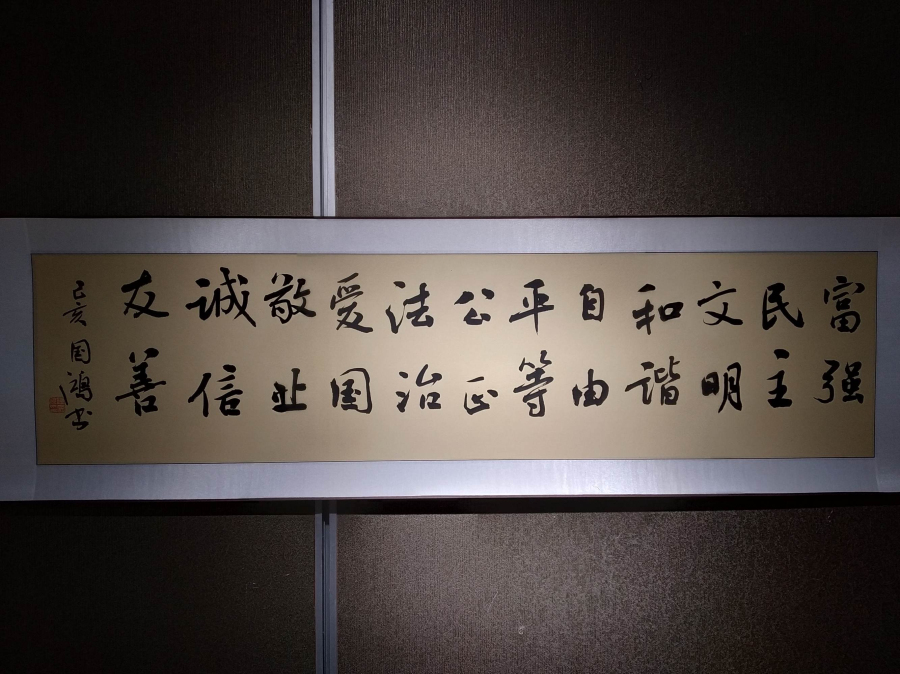 富强
民主
文明
和谐
自由
平等
公正
法治
爱国
敬业
诚信
友善
己亥国鸿书